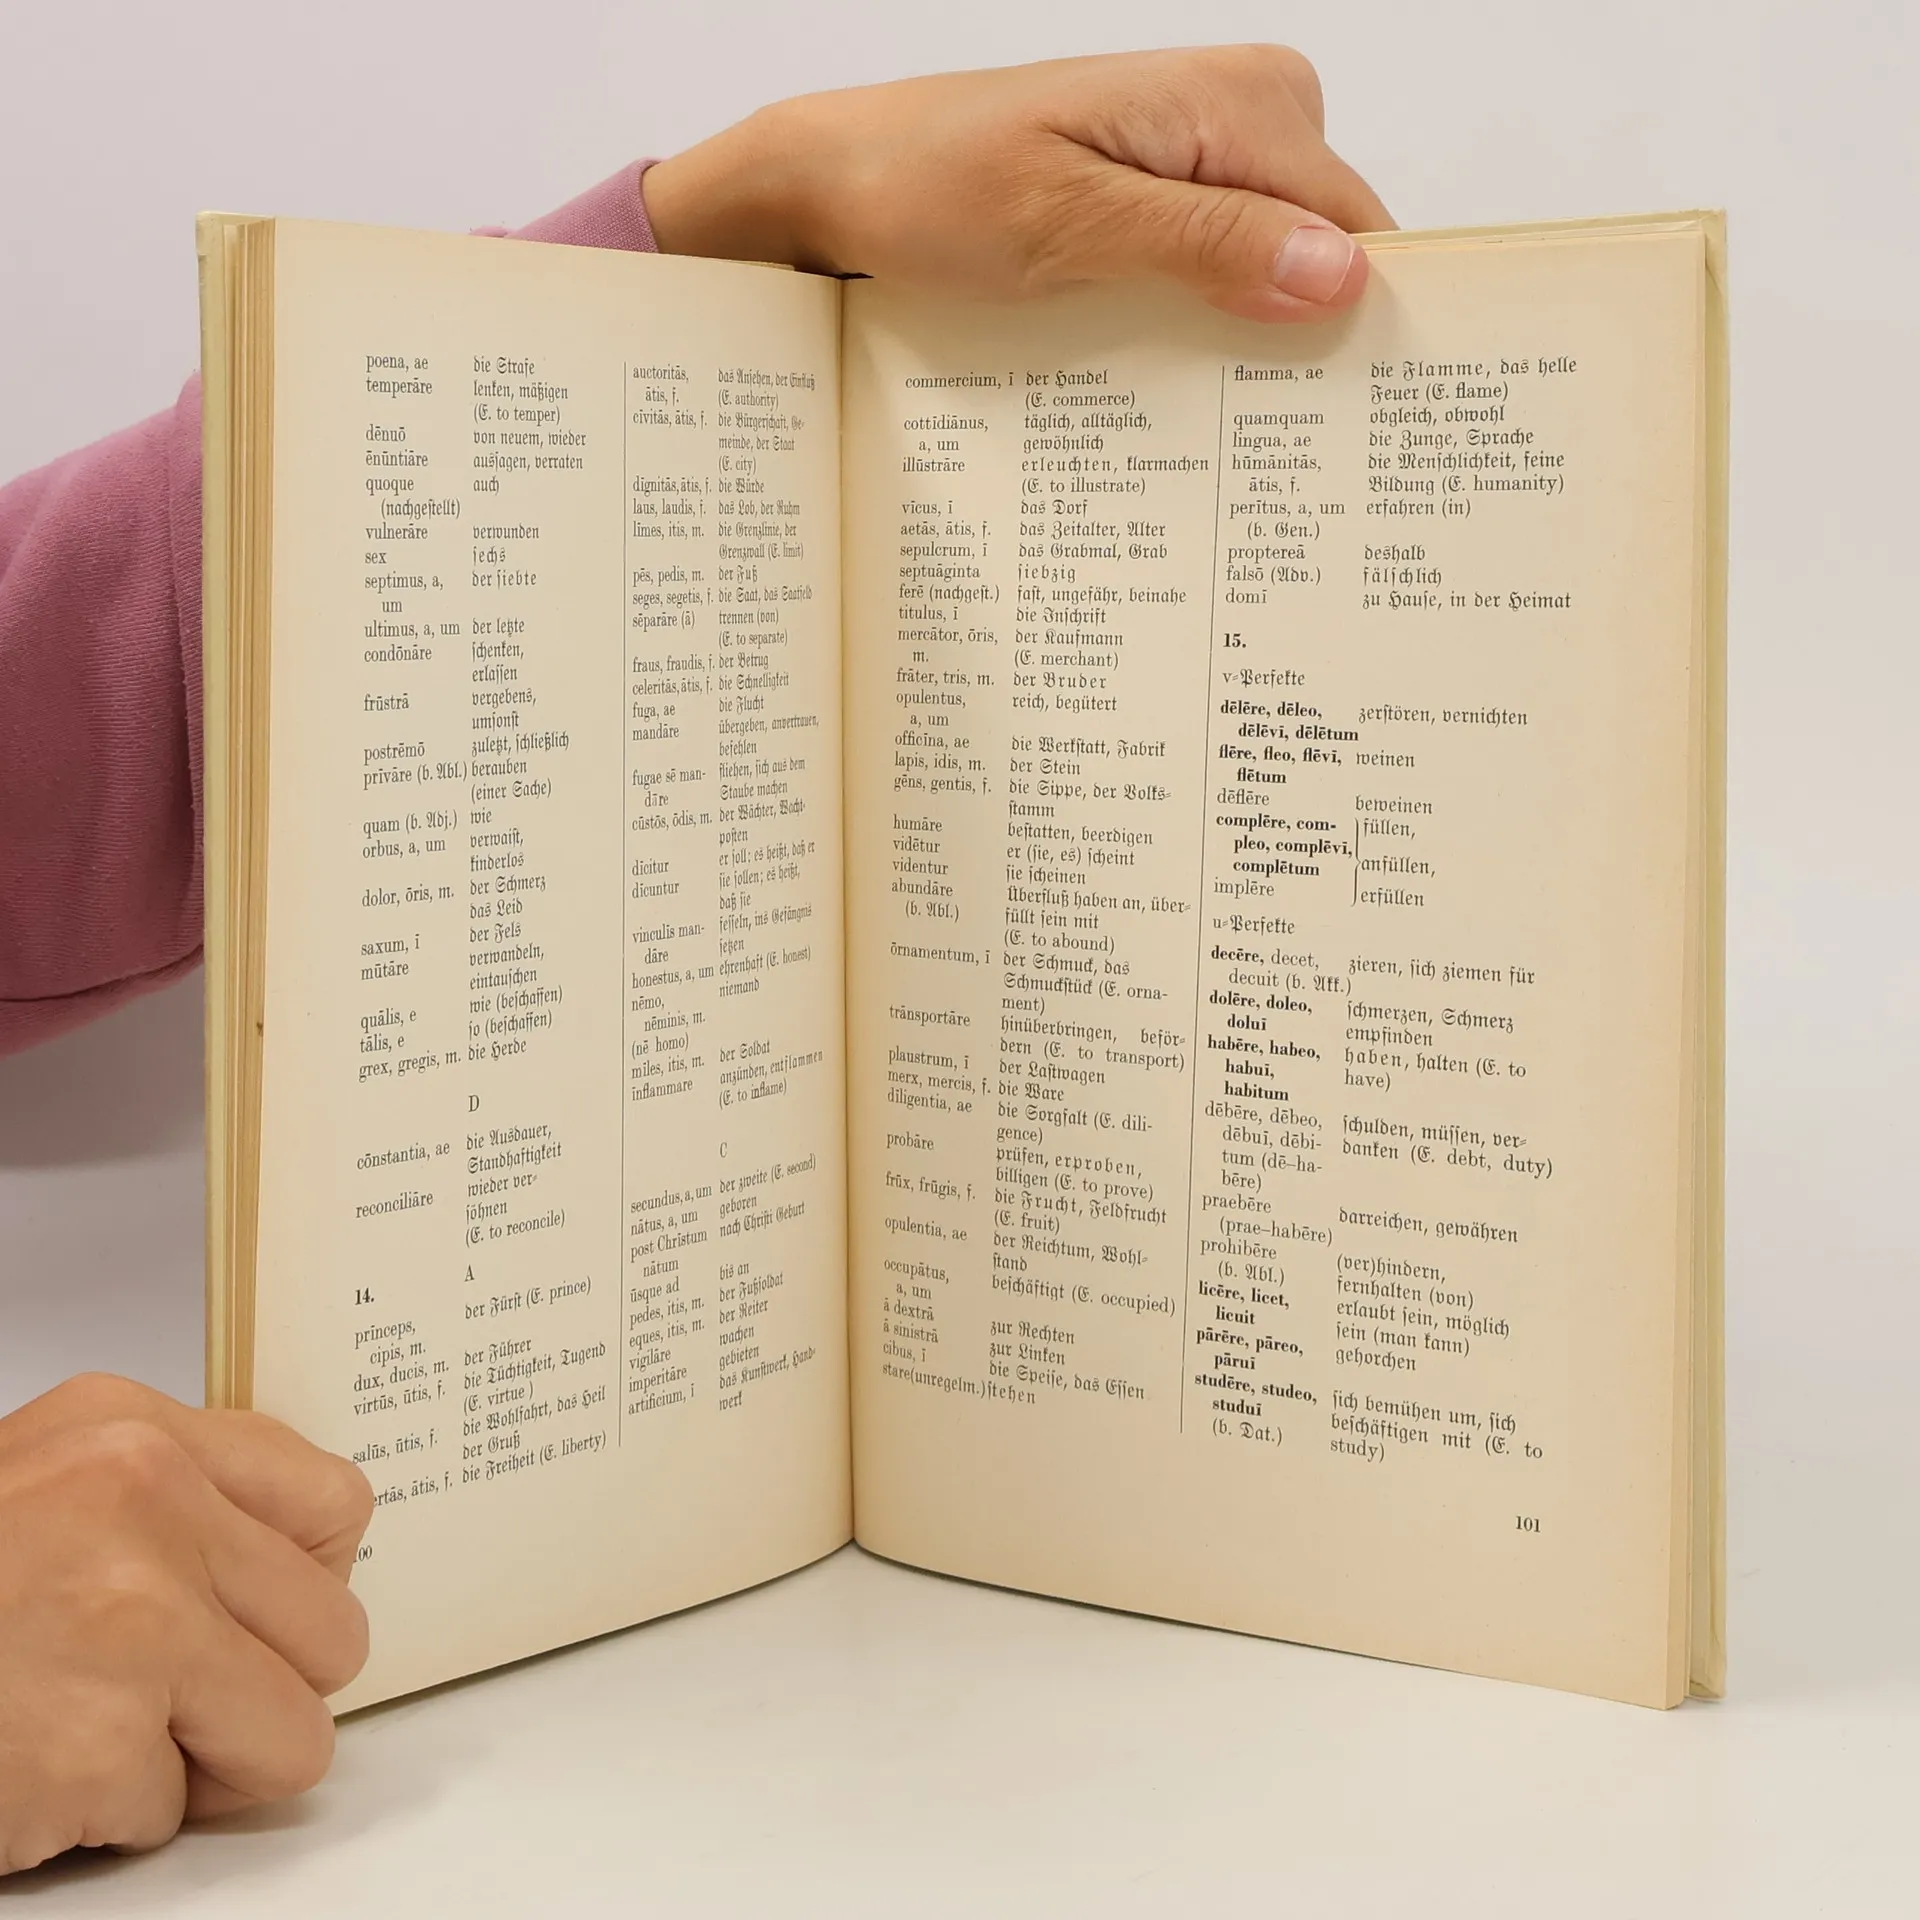 poena, ae die Strafe
temperāre lenken, mäßigen
(E. to temper)
dēnuō von neuem, wieder
ēnūntiāre aussagen, verraten
quoque auch
(nachgestellt)
vulnerāre verwunden
sex sechs
septimus, a, der siebte
um
ultimus, a, um der letzte
condōnāre schenken,
erlassen
frūstrā vergebens,
umsonst
postrēmō zuletzt, schließlich
prīvāre (b. Abl.) berauben
(einer Sache)
quam (b. Adj.) wie
orbus, a, um verwaist,
kinderlos
dolor, ōris, m. der Schmerz
das Leid
saxum, ī der Fels
mūtāre verwandeln,
eintauschen
quālis, e wie (beschaffen)
tālis, e so (beschaffen)
grex, gregis, m. die Herde
D
cōnstantia, ae die Ausdauer,
Standhaftigkeit
reconciliāre wieder ver-
söhnen
(E. to reconcile)
14. A
prīnceps, der Fürst (E. prince)
cipis, m.
dux, ducis, m. der Führer
virtūs, ūtis, f. die Tüchtigkeit, Tugend
(E. virtue)
salūs, ūtis, f. die Wohlfahrt, das Heil
der Gruß
ertās, ātis, f. die Freiheit (E. liberty)
00
auctoritās, das Ansehen, der Einfluß
ātis, f. (E. authority)
cīvitās, ātis, f. die Bürgerschaft, Ge-
meinde, der Staat
(E. city)
dīgnitās, ātis, f. die Würde
laus, laudis, f. das Lob, der Ruhm
līmes, itis, m. die Grenzlinie, der
Grenzwall (E. limit)
pēs, pedis, m. der Fuß
seges, segetis, f. die Saat, das Saatfeld
sēparāre (ā) trennen (von)
(E. to separate)
fraus, fraudis, f. der Betrug
celeritās, ātis, f. die Schnelligkeit
fuga, ae die Flucht
mandāre übergeben, anvertrauen,
befehlen
fugae sē man- fliehen, sich aus dem
dāre Staube machen
cūstōs, ōdis, m. der Wächter, Wacht-
posten
dīcitur er soll; es heißt, daß er
dīcuntur sie sollen; es heißt,
daß sie
vinculīs man- fesseln, ins Gefängnis
dāre setzen
honestus, a, um ehrenhaft (E. honest)
nēmo, niemand
nēminis, m.
(nē homo)
mīles, itis, m. der Soldat
īnflammare anzünden, entflammen
(E. to inflame)
C
secundus, a, um der zweite (E. second)
nātus, a, um geboren
post Chrīstum nach Christi Geburt
nātum
ūsque ad bis an
pedes, itis, m. der Fußsoldat
eques, itis, m. der Reiter
vigilāre wachen
imperitāre gebieten
artificium, ī das Kunstwerk, Hand-
werk
commercium, ī der Handel
(E. commerce)
cottīdiānus, täglich, alltäglich,
a, um gewöhnlich
illūstrāre erleuchten, klarmachen
(E. to illustrate)
vīcus, ī das Dorf
aetās, ātis, f. das Zeitalter, Alter
sepulcrum, ī das Grabmal, Grab
septuāginta siebzig
ferē (nachgest.) fast, ungefähr, beinahe
titulus, ī die Inschrift
mercātor, ōris, der Kaufmann
m. (E. merchant)
frāter, tris, m. der Bruder
opulentus, reich, begütert
a, um
officīna, ae die Werkstatt, Fabrik
lapis, idis, m. der Stein
gēns, gentis, f. die Sippe, der Volks-
stamm
humāre bestatten, beerdigen
vidētur er (sie, es) scheint
videntur sie scheinen
abundāre Überfluß haben an, über-
(b. Abl.) füllt sein mit
(E. to abound)
ōrnamentum, ī der Schmuck, das
Schmuckstück (E. orna-
ment)
trānsportāre hinüberbringen, beför-
dern (E. to transport)
plaustrum, ī der Lastwagen
merx, mercis, f. die Ware
dīligentia, ae die Sorgfalt (E. dili-
gence)
probāre prüfen, erproben,
billigen (E. to prove)
frūx, frūgis, f. die Frucht, Feldfrucht
(E. fruit)
opulentia, ae der Reichtum, Wohl-
stand
occupātus, beschäftigt (E. occupied)
a, um
ā dextrā zur Rechten
ā sinistrā zur Linken
cibus, ī die Speise, das Essen
stare(unregelm.) stehen
flamma, ae die Flamme, das helle
Feuer (E. flame)
quamquam obgleich, obwohl
lingua, ae die Zunge, Sprache
hūmānitās, die Menschlichkeit, feine
ātis, f. Bildung (E. humanity)
perītus, a, um erfahren (in)
(b. Gen.)
proptereā deshalb
falsō (Adv.) fälschlich
domī zu Hause, in der Heimat
15.
v-Perfekte
dēlēre, dēleo, zerstören, vernichten
dēlēvī, dēlētum
flēre, fleo, flēvī, weinen
flētum
dēflēre beweinen
complēre, com- füllen,
pleo, complēvī,
complētum anfüllen,
implēre erfüllen
u-Perfekte
decēre, decet, zieren, sich ziemen für
decuit (b. Akk.)
dolēre, doleo, schmerzen, Schmerz
doluī empfinden
habēre, habeo, haben, halten (E. to
habuī, have)
habitum
dēbēre, dēbeo, schulden, müssen, ver-
dēbuī, dēbi- danken (E. debt, duty)
tum (dē-ha-
bēre)
praebēre darreichen, gewähren
(prae-habēre)
prohibēre (ver)hindern,
(b. Abl.) fernhalten (von)
licēre, licet, erlaubt sein, möglich
licuit sein (man kann)
pārēre, pāreo, gehorchen
pāruī
studēre, studeo, sich bemühen um, sich
studuī beschäftigen mit (E. to
(b. Dat.) study)
101